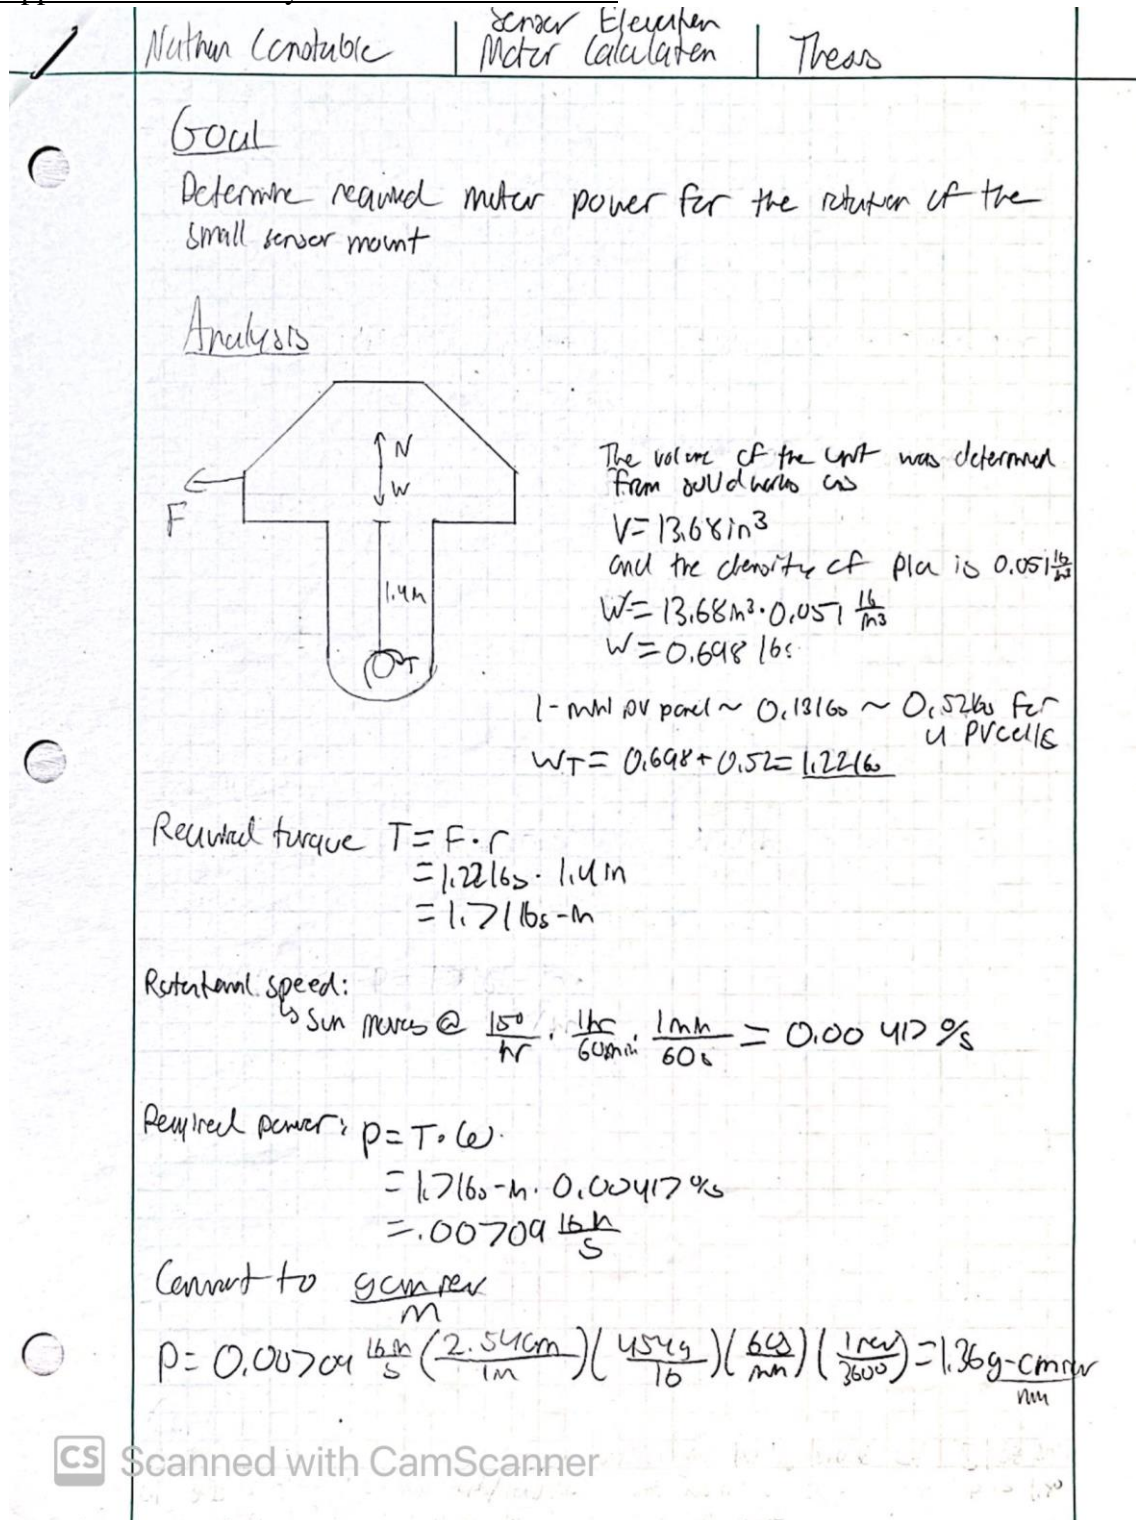 Nathan Constable
Sensor Elevation
Motor Calculation
Thesis
Goal
Determine required motor power for the rotation of the
small sensor mount
Analysis
N
W
F
1.4in
T
The volume of the unit was determined
from solidworks as
V=13.68in³
and the density of pla is 0.051 lb/in³
W=13.68in³·0.051 lb/in³
W=0.698 lbs
1-mini pv panel ~ 0.13lbs ~ 0.52lbs for
4 PV cells
WT= 0.698+0.52=1.22lbs
Required torque T=F·r
=1.22lbs·1.4in
=1.71 lbs-in
Rotational speed:
↳ Sun moves @ 15°/hr · 1hr/60min · 1min/60s = 0.00417 °/s
Required power: P=T·ω
=1.7lbs-in·0.00417°/s
=.00709 lb in/s
Convert to gcm rev/m
P=0.00709 lb in/s (2.54cm/1in)(454g/lb)(60s/min)(1rev/360°)=1.36g-cm rev/min
CS Scanned with CamScanner